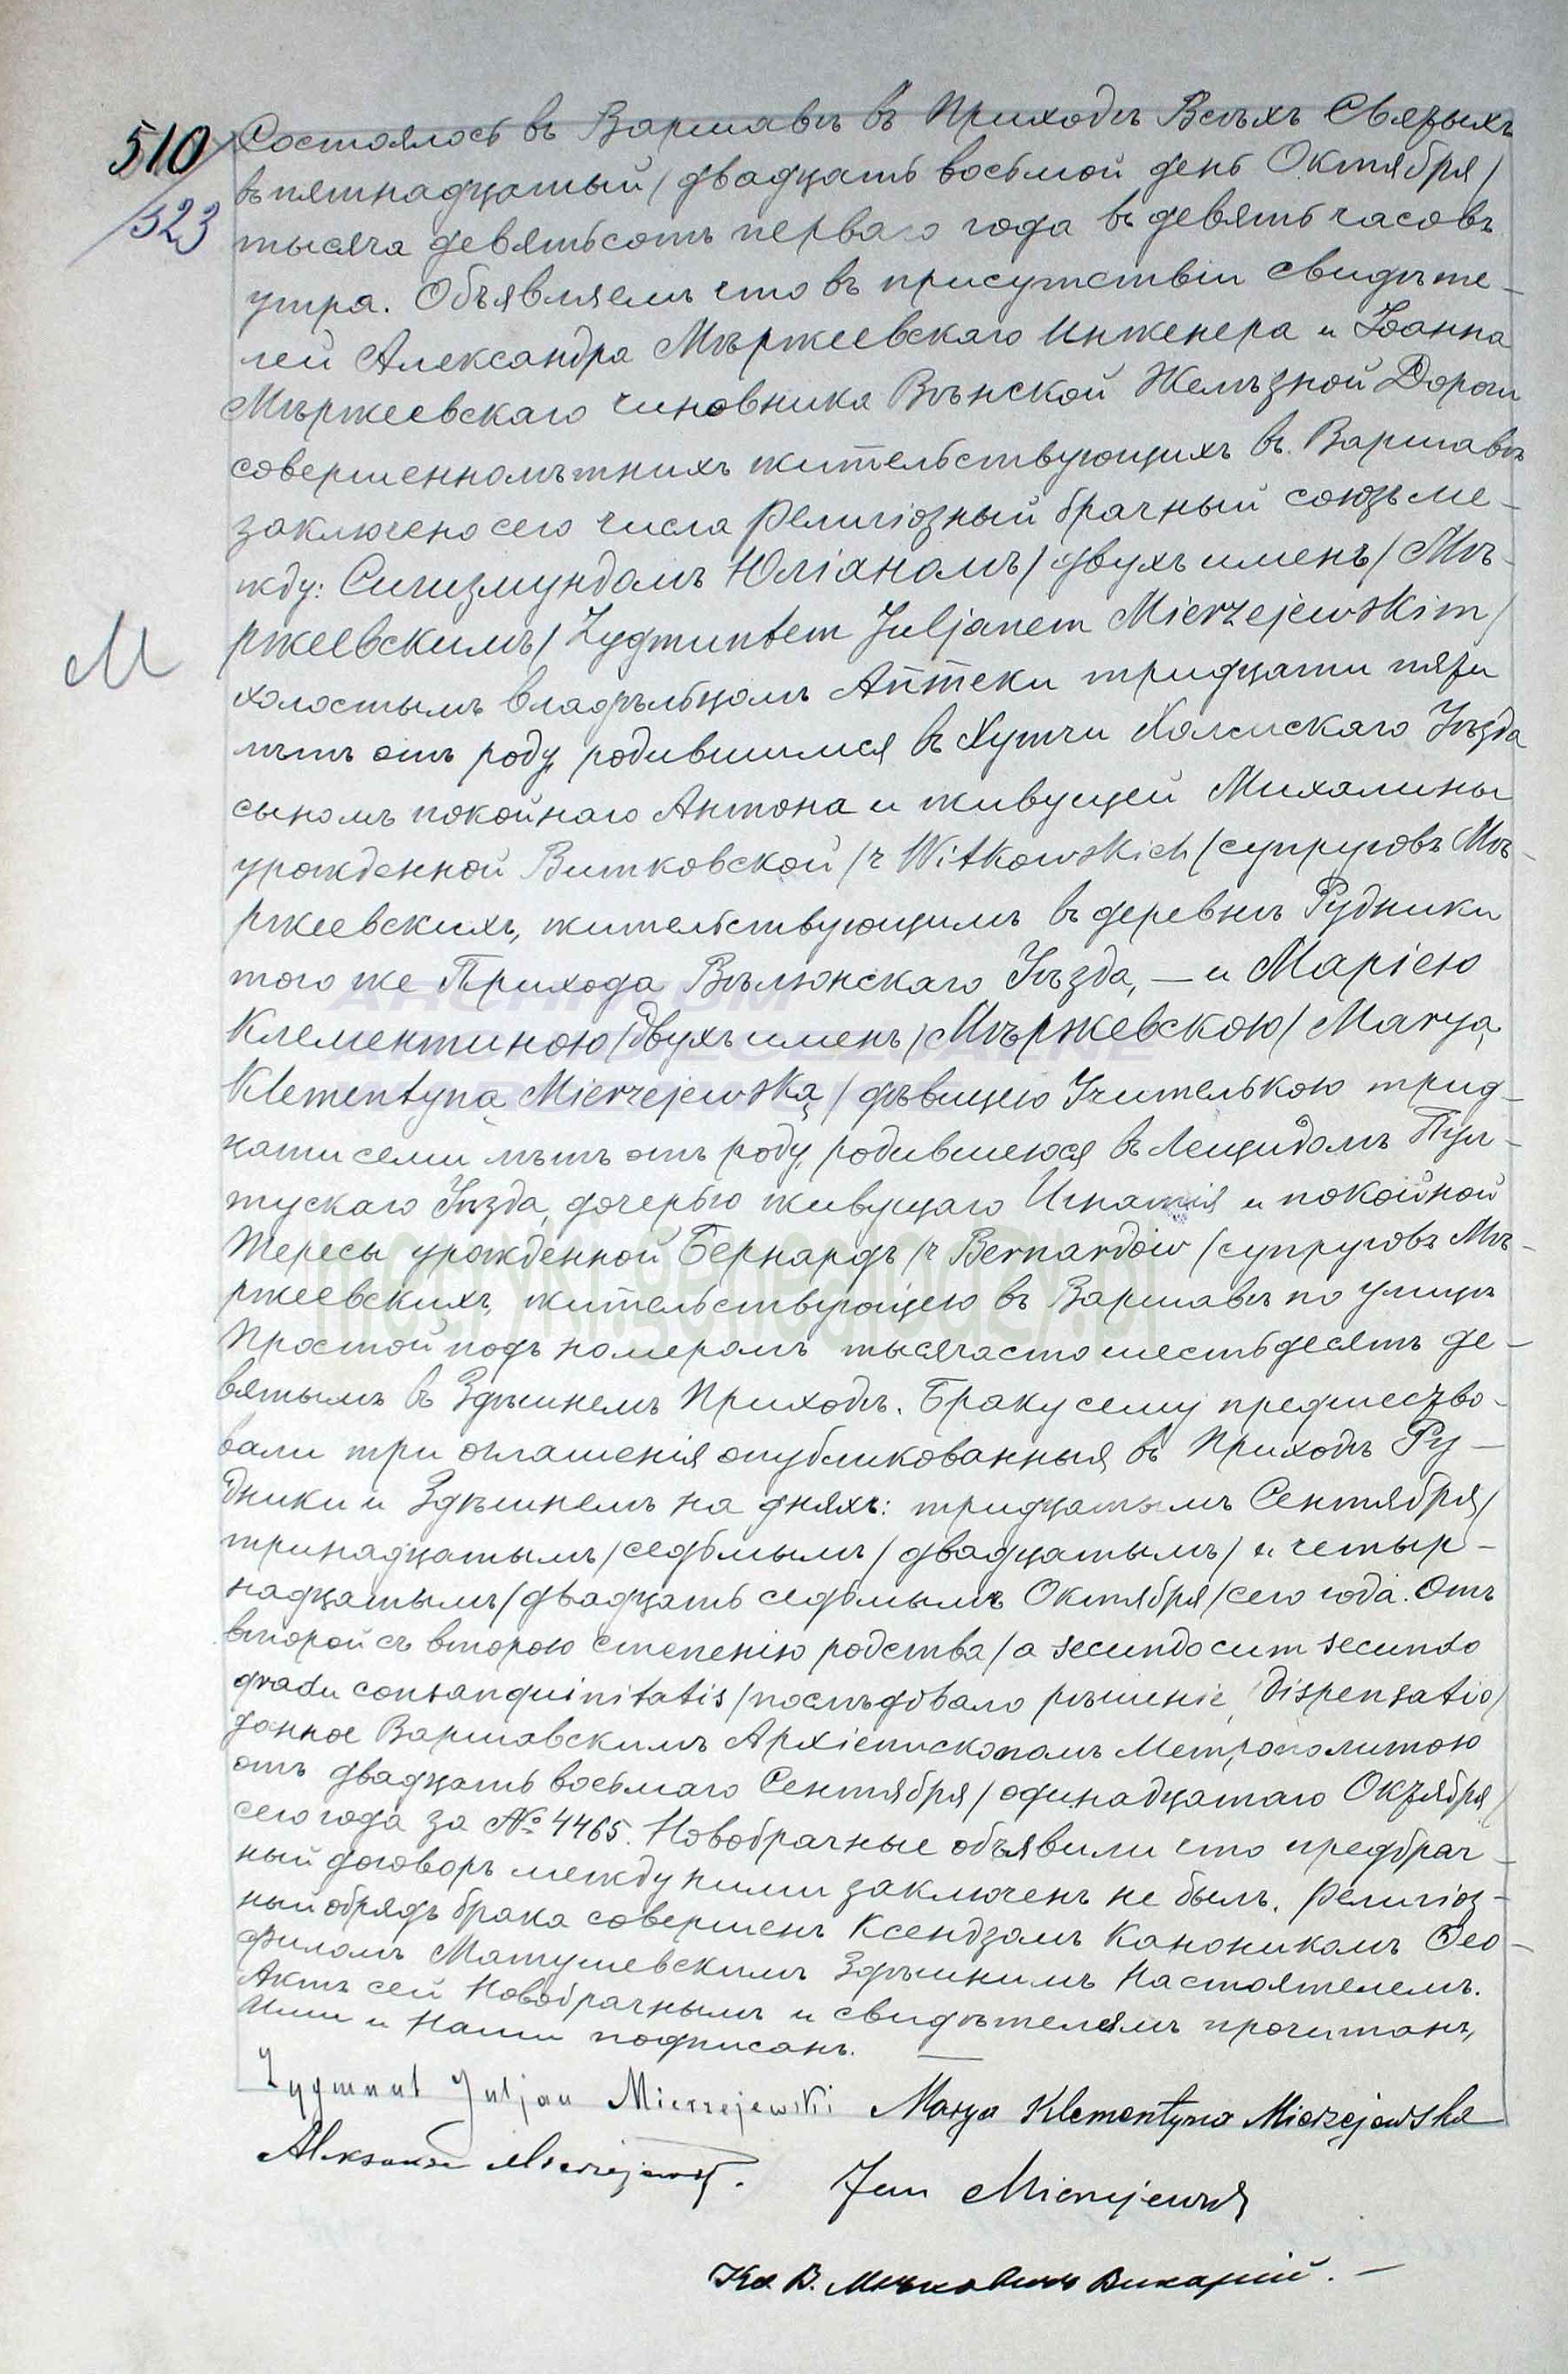 510
523
Состоялось въ Варшавѣ въ Приходѣ Всѣхъ Святыхъ
въ пятнадцатый / двадцать восьмой день Октября /
тысяча девятьсотъ перваго года въ девять часовъ
утра. Объявляемъ что въ присутствіи свидѣте-
лей Александра Мѣржеевскаго Инженера и Іоанна
Мѣржеевскаго чиновника Вѣнской Желѣзной Дороги
совершеннолѣтнихъ жительствующихъ въ Варшавѣ
заключено сего числа религіозный брачный союзъ ме-
жду: Сигизмундомъ Юліаномъ / двухъ именъ / Мѣ-
М
ржеевскимъ / Zygmuntem Juljanem Mierzejewskim /
холостымъ владѣльцомъ Аптеки тридцати пяти
лѣтъ отъ роду, родившимся въ Хутчи Холмскаго Уѣзда
сыномъ покойнаго Антона и живущей Михалины
урожденной Витковской / z Witkowskich / супруговъ Мѣ-
ржеевскихъ, жительствующимъ въ деревнѣ Рудники
того же Прихода Вѣлюнскаго Уѣзда, — и Маріею
Клементиною / двухъ именъ / Мѣржевскою / Maryą
Klementyną Mierzejewską / дѣвицею Учителькою трид-
цати семи лѣтъ отъ роду, родившеюся въ Пул-
тускаго Уѣзда, дочерью живущаго Игнатія и покойной
Тересы урожденной Бернардъ / z Bernardów / супруговъ Мѣ-
ржеевскихъ, жительствующею въ Варшавѣ по улицѣ
Простой подъ номеромъ тысяча сто шестьдесятъ де-
вятымъ въ Здѣшнемъ Приходѣ. Браку сему предшество-
вали три оглашенія опубликованныя въ Приходѣ Ру-
дники и Здѣшнемъ на дняхъ: тридцатымъ Сентября /
тринадцатымъ / седьмымъ / двадцатымъ / и четыр-
надцатымъ / двадцать седьмымъ Октября / сего года. Отъ
второй съ второю степенію родства / a secundo cum secundo
gradu consanguinitatis / послѣдовало рѣшеніе, / dispensatio /
данное Варшавскимъ Архіепископомъ Метрополитою
отъ двадцать восьмаго Сентября / одинадцатаго Октября /
сего года за № 4465. Новобрачные объявили что предбрач-
ный договоръ между ними заключенъ не былъ. Религіоз-
ный обрядъ брака совершенъ Ксендзомъ Каноникомъ Ѳео-
филомъ Матушевскимъ Здѣшнимъ Настоятелемъ.
Актъ сей Новобрачнымъ и свидѣтелямъ прочитанъ,
Ими и Нами подписанъ. —
Zygmunt Juljan Mierzejewski Marya Klementyna Mierzejewska
Aleksander Mierzejewski. Jan Mierzejewski
Кс. В. Викарій. —
ARCHIWUM
metryki.genealodzy.pl